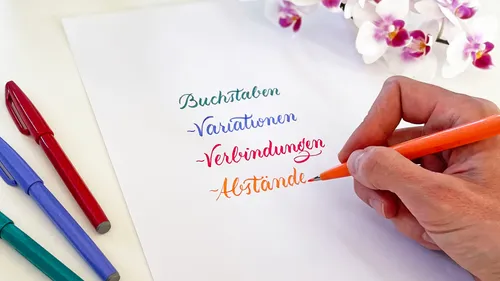 Buchstaben
-Variationen
-Verbindungen
-Abstände